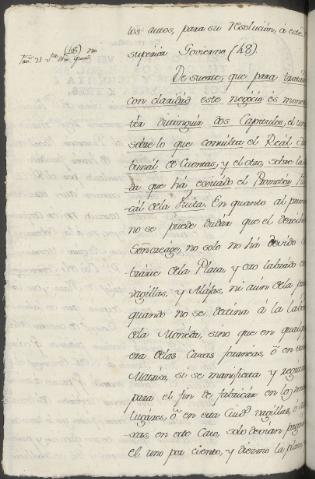 los autos, para su resolucion, à este
superior Govierno (48).
(48)
De suerte, que para tratar
con claridad este negocio es menes
ter distinguir dos Capitulos, el uno
sobre lo que consulta el Real Tri
bunal de Cuentas, y el otro, sobre la
da que há excitado el Promotor Fis
cal de la Visita. En quanto al primero
no se puede dudar que el derecho
Señoreage, no solo no há devido co
brarse de la Plata, y oro labrado en
vagillas, y Alajas, ni aun de la pasta
quando no se destina á la labor
de la Moneda, sino que en qualqui
era de las Caxas foraneas, ó en esta
Matriz, si se manifiesta y
para el fin de fabricar en los
lugares, ó en esta Ciud. vagillas, ó
xas en este Caso, solo devian pagar
el uno por ciento, y diezmo la plata